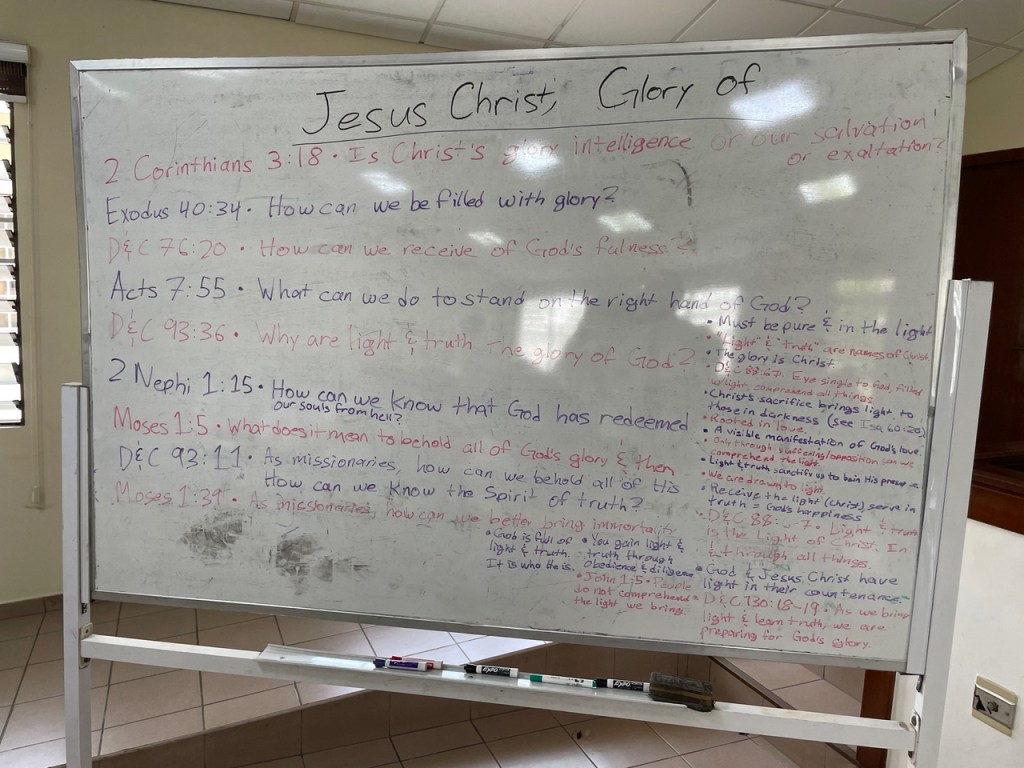 Jesus Christ, Glory of
2 Corinthians 3:18 • Is Christ's glory intelligence or our salvation
or exaltation?
Exodus 40:34 • How can we be filled with glory?
D&C 76:20 • How can we receive of God's fulness?
Acts 7:55 • What can we do to stand on the right hand of God?
D&C 93:36 • Why are light & truth the glory of God?
2 Nephi 1:15 • How can we know that God has redeemed
our souls from hell?
Moses 1:5 • What does it mean to behold all of God's glory & then
D&C 93:11 • As missionaries, how can we behold all of His
How can we know the Spirit of truth?
Moses 1:39 • As missionaries, how can we better bring immortality
• God is full of
light & truth.
It is who He is.
• You gain light &
truth through
obedience & diligence
• John 1:5 • People
do not comprehend
the light we bring.
• Must be pure & in the light
• "Light" & "truth" are names of Christ
• The glory is Christ
• D&C 88:67. Eye single to God, filled
w/light comprehend all things.
• Christ's sacrifice brings light to
those in darkness (see Isa 60:20)
• Rooted in love.
• A visible manifestation of God's love.
• Only through suffering/opposition can we
comprehend the light.
• Light & truth sanctify us to be in His presence
• We are drawn to light
• Receive the light (Christ), serve in
truth = God's happiness
• D&C 88: -7 • Light & truth
is the light of Christ. In
& through all things.
• God & Jesus Christ have
light in their countenance.
• D&C 130:18-19 • As we bring
light & learn truth, we are
preparing for God's glory.